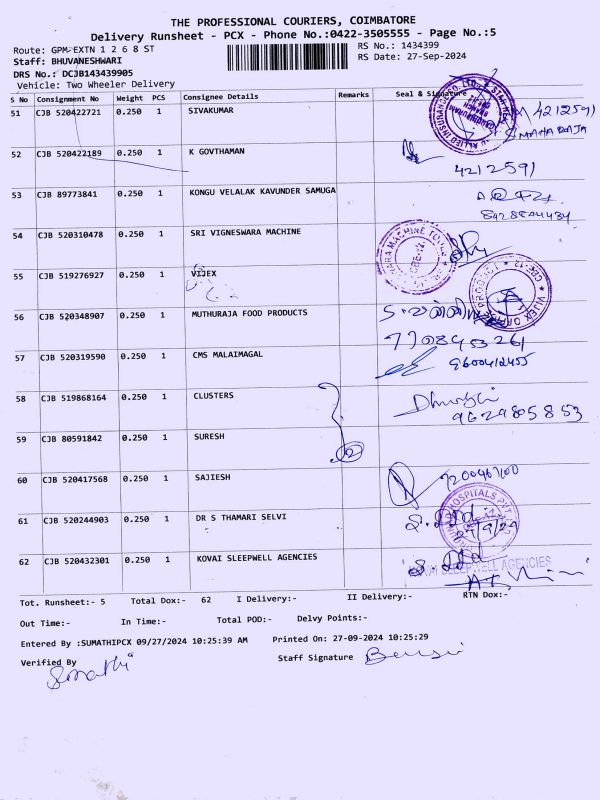 THE PROFESSIONAL COURIERS, COIMBATORE
Delivery Runsheet - PCX - Phone No.:0422-3505555 - Page No.:5
Route: GPM-EXTN 1 2 6 8 ST RS No.: 1434399
Staff: BHUVANESHWARI RS Date: 27-Sep-2024
DRS No.: DCJB143439905
Vehicle: Two Wheeler Delivery
S No Consignment No Weight PCS Consignee Details Remarks Seal & Signature
51 CJB 520422721 0.250 1 SIVAKUMAR 4212591
MAHARAJA
52 CJB 520422189 0.250 1 K GOVTHAMAN
4212591
53 CJB 89773841 0.250 1 KONGU VELALAK KAVUNDER SAMUGA
54 CJB 520310478 0.250 1 SRI VIGNESWARA MACHINE
55 CJB 519276927 0.250 1 VIJEX
56 CJB 520348907 0.250 1 MUTHURAJA FOOD PRODUCTS
57 CJB 520319590 0.250 1 CMS MALAIMAGAL 9600412455
58 CJB 519868164 0.250 1 CLUSTERS
9629805853
59 CJB 80591842 0.250 1 SURESH 2
60 CJB 520417568 0.250 1 SAJIESH
61 CJB 520244903 0.250 1 DR S THAMARI SELVI
62 CJB 520432301 0.250 1 KOVAI SLEEPWELL AGENCIES SLEEPWELL AGENCIES
Tot. Runsheet:- 5 Total Dox:- 62 I Delivery:- II Delivery:- RTN Dox:-
Out Time:- In Time:- Total POD:- Delvy Points:-
Entered By :SUMATHIPCX 09/27/2024 10:25:39 AM Printed On: 27-09-2024 10:25:29
Verified By Staff Signature
Sumathi